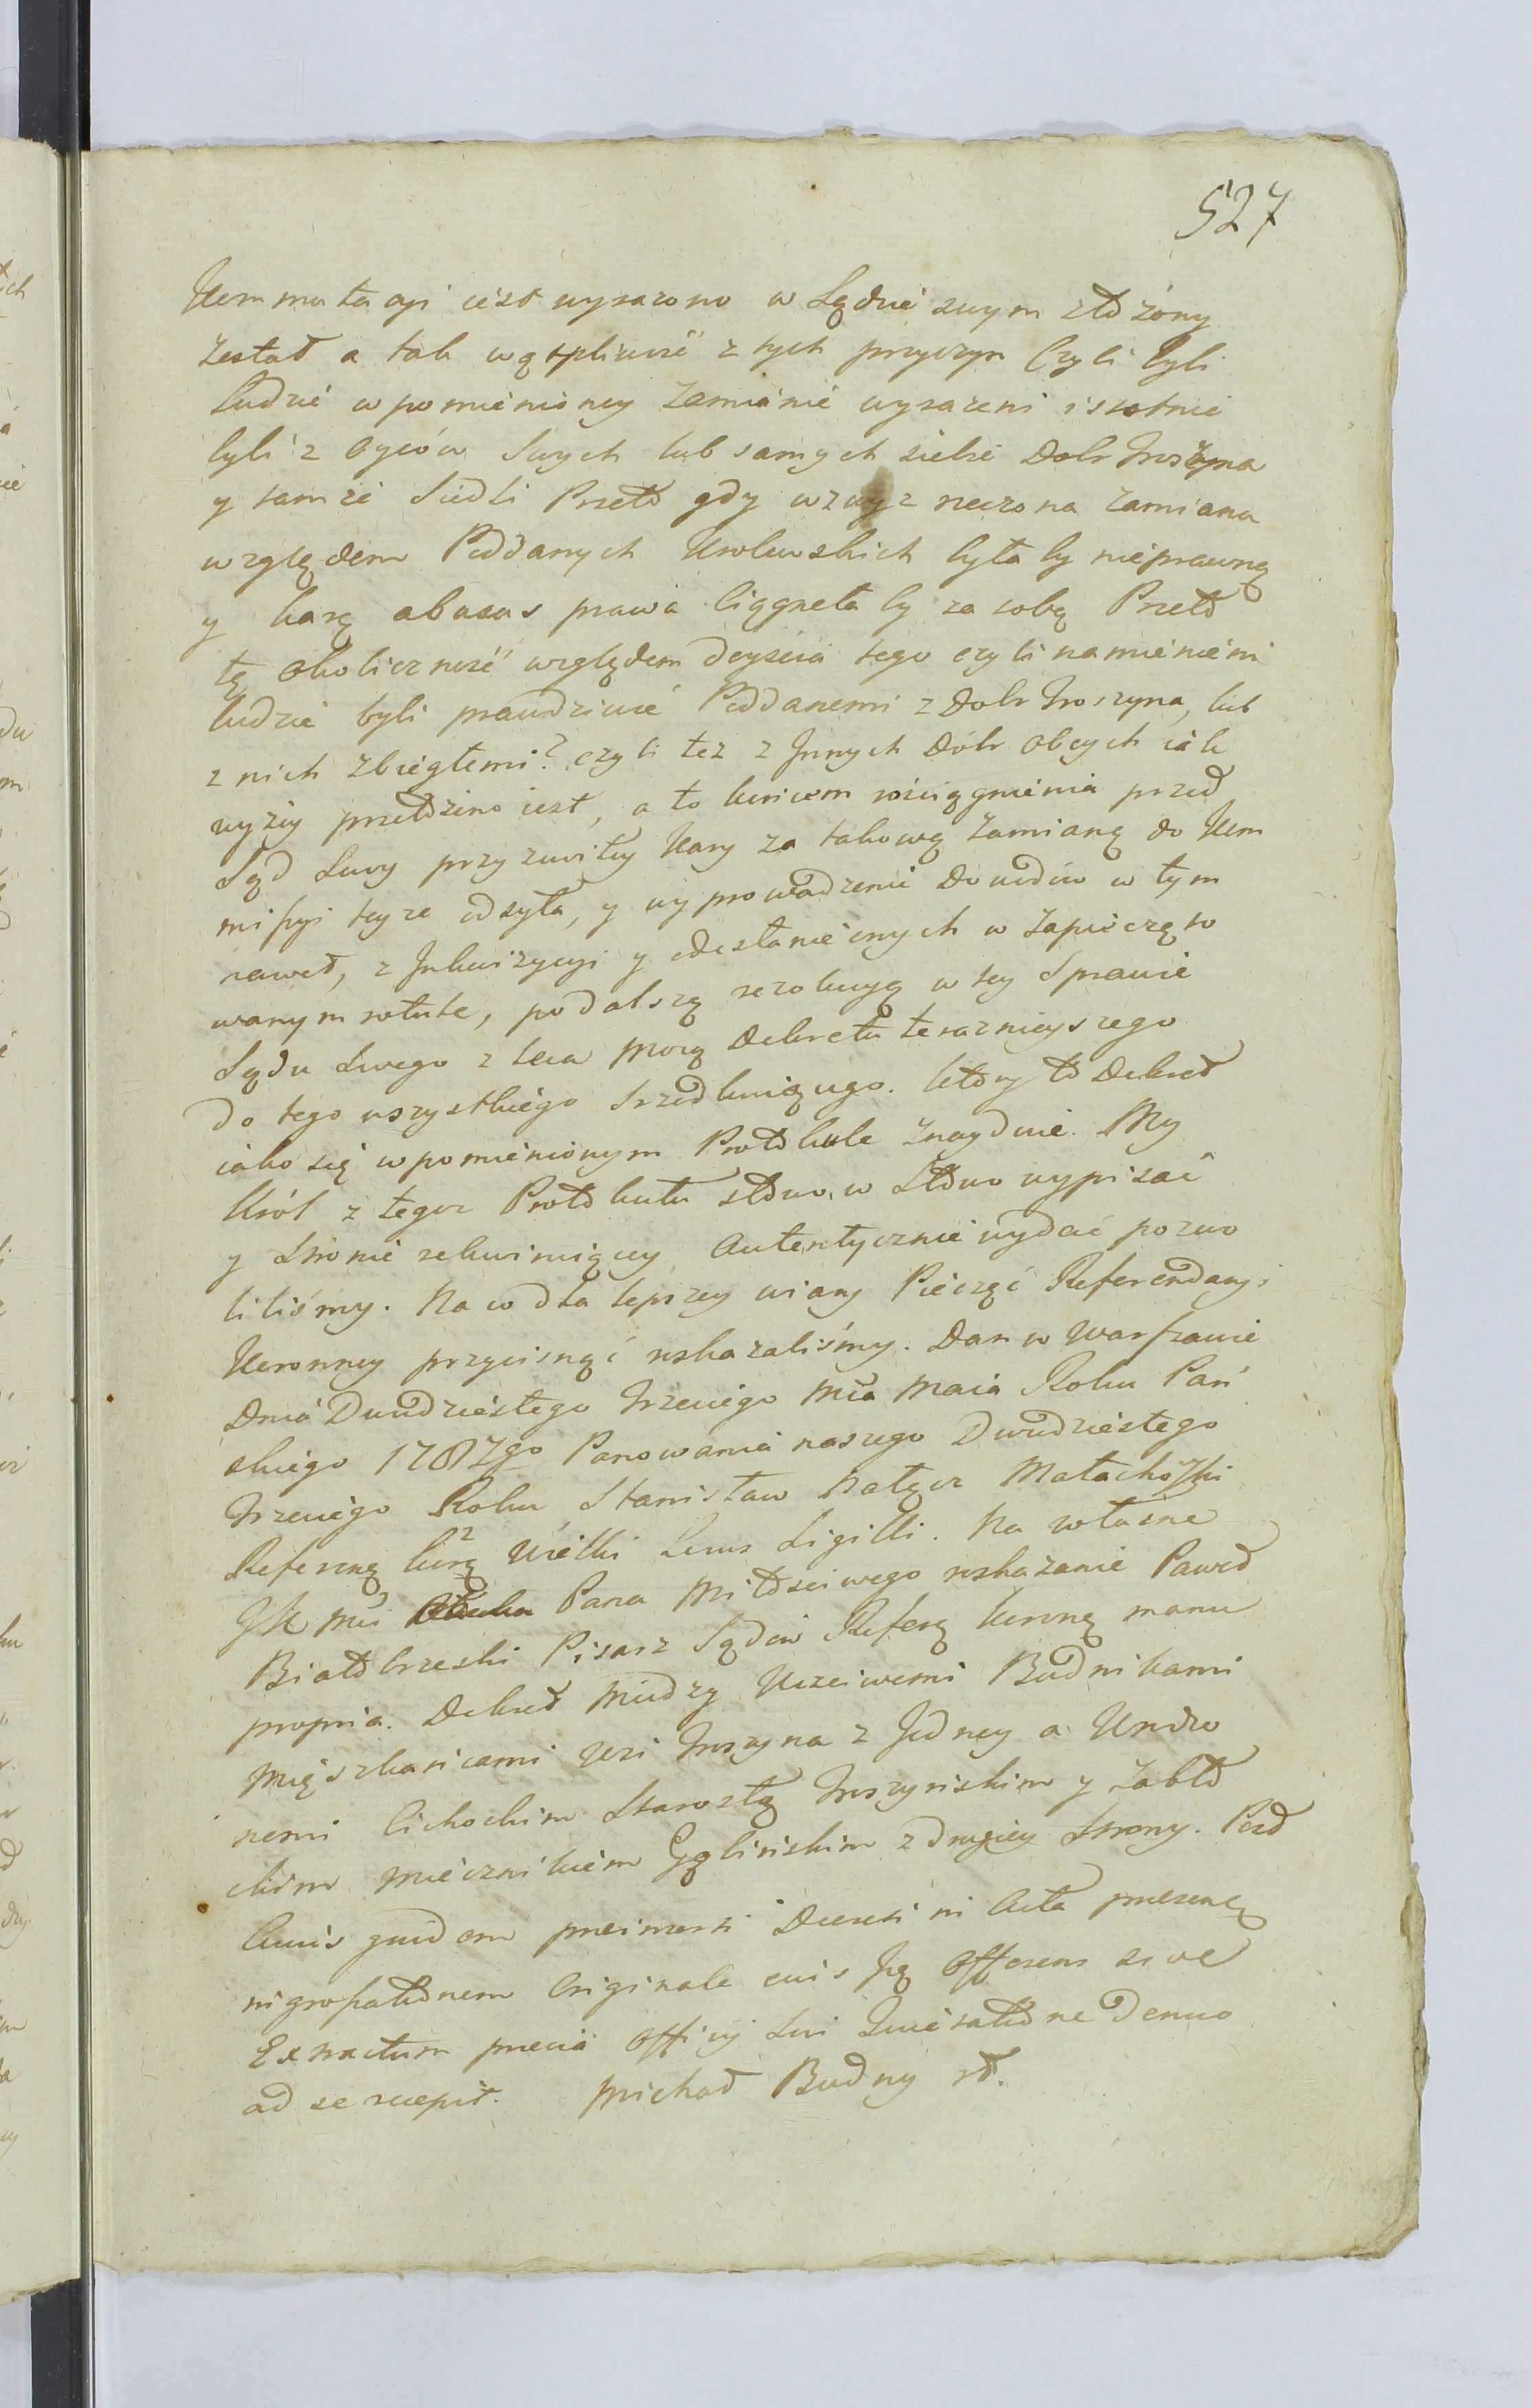 527
Kommutacyi iest wyrażono w Sądzie swym złożony
został a tak wątpliwość z tych przyczyn Czyli byli
ludzie w pomienioney Zamianie wyrażeni istotnie
byli z Oyców Swych lub samych siebie Dobr Troszyna
y tamże Siedli Przeto gdy wzwyż rzeczona zamiana
względem Poddanych Krolewskich byłaby nieprawną
y karę abusus prawa ciągnęła by za sobą Przeto
tę Okoliczność względem doyścia tego czyli namienieni
ludzie byli prawdziwie Poddanemi z Dobr Troszyna, lub
z nich Zbiegłemi? czyli też z Innych Dóbr obcych iak
wyżey przełożono iest, a to końcem rościągnienia przed
Sąd Swoy przyzwoitey Kary za takową Zamianę do Kom
missyi teyże odsyła, y wyprowadzenie Dowodów w tym
nawet, z Inkwizycyi y odesłanie onych w Zapieczęto
wanym rotule, po dalszą rezolucyą w tey Sprawie
Sądu Swego zleca mocą Dekretu teraznieyszego
do tego wszystkiego Srzodkuiącego. Ktory to Dekret
iako się w pomienionym Protokule Znayduie. My
Król z tegoż Protokułu słowo w Słowo wypisać
y Stronie rekwiruiącey Autentycznie wydać pozwo
liliśmy. Na co dla lepszey wiary Pieczęć Referendaryi
Koronney przycisnąć rozkazaliśmy. Dan w Warszawie
Dnia Dwudziestego Trzeciego Mca Maia Roku Pań
skiego 1787go Panowania naszego Dwudziestego
Trzeciego Roku Stanisław Nałęcz Małachowski
Referend Kor Wielki Locus Sigilli. Na własne
JK Mci Pana Miłościwego rozkazanie Paweł
Białobrzeski Pisarz Sądów Refer Koronn manu
propria. Dekret między Uczciwemi Budnikami
Mięszkańcami wsi Troszyna z Jedney a Urodzo
nemi Cichockim Starostą Troszyńskim y Zabło
ckim Miecznikiem Gąbińskim z drugiey Strony. Post
Cuius quidem preinserti Decreti in Acta presen
ingrossationem Originale eius Idem Offerens sive
Extractum precia Officij Sui Quietatione Denuo
ad se recepit. Michał Budny